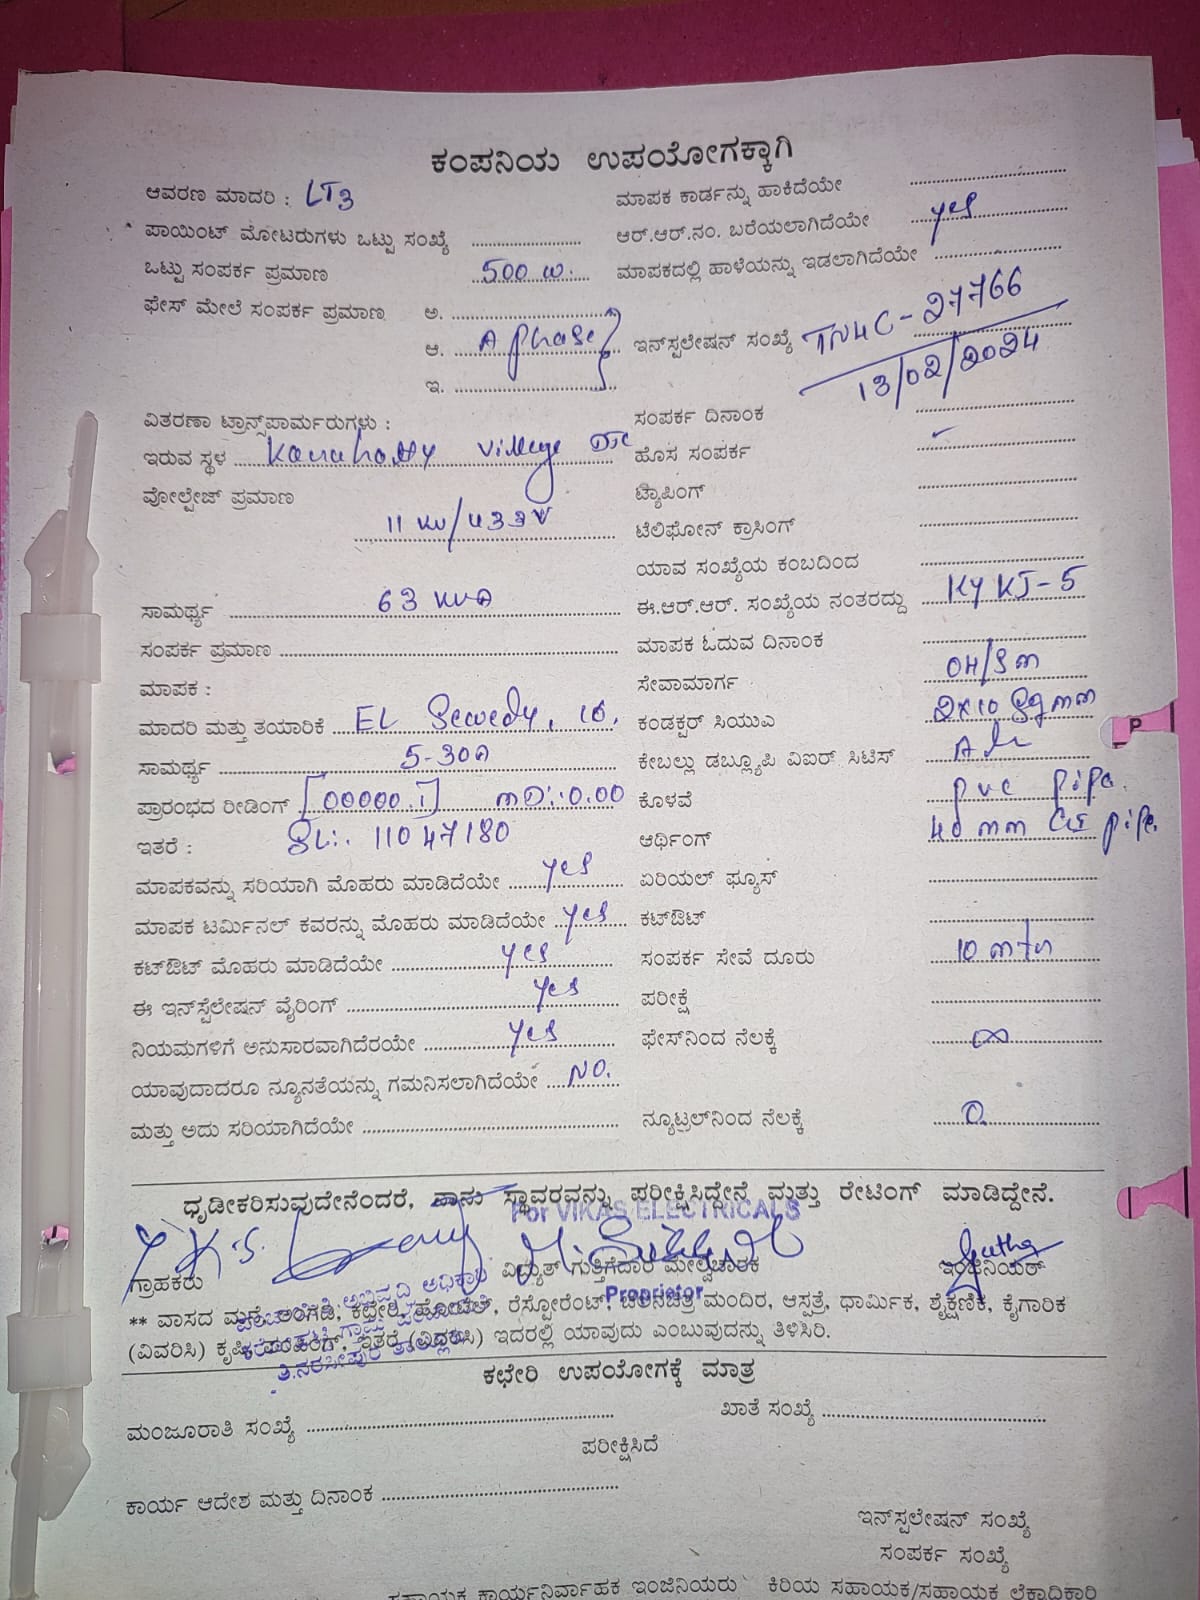 ಕಂಪನಿಯ ಉಪಯೋಗಕ್ಕಾಗಿ
ಆವರಣ ಮಾದರಿ : LT3 ಮಾಪಕ ಕಾರ್ಡನ್ನು ಹಾಕಿದೆಯೇ
ಪಾಯಿಂಟ್ ಮೋಟರುಗಳು ಒಟ್ಟು ಸಂಖ್ಯೆ ಆರ್.ಆರ್.ನಂ. ಬರೆಯಲಾಗಿದೆಯೇ yes
ಒಟ್ಟು ಸಂಪರ್ಕ ಪ್ರಮಾಣ 500 W. ಮಾಪಕದಲ್ಲಿ ಹಾಳೆಯನ್ನು ಇಡಲಾಗಿದೆಯೇ
ಫೇಸ್ ಮೇಲೆ ಸಂಪರ್ಕ ಪ್ರಮಾಣ ಅ.
ಆ. A phase ಇನ್‌ಸ್ಪಲೇಷನ್ ಸಂಖ್ಯೆ TN4C-27766
ಇ. 13/02/2024
ವಿತರಣಾ ಟ್ರಾನ್ಸ್‌ಪಾರ್ಮರುಗಳು : ಸಂಪರ್ಕ ದಿನಾಂಕ
ಇರುವ ಸ್ಥಳ Village ಹೊಸ ಸಂಪರ್ಕ ✓
ವೋಲ್ಟೇಜ್ ಪ್ರಮಾಣ 11 KV/433V ಟ್ಯಾಪಿಂಗ್
ಟೆಲಿಫೋನ್ ಕ್ರಾಸಿಂಗ್
ಯಾವ ಸಂಖ್ಯೆಯ ಕಂಬದಿಂದ
ಸಾಮರ್ಥ್ಯ 63 KVA ಈ.ಆರ್.ಆರ್. ಸಂಖ್ಯೆಯ ನಂತರದ್ದು KYKJ-5
ಸಂಪರ್ಕ ಪ್ರಮಾಣ ಮಾಪಕ ಓದುವ ದಿನಾಂಕ
ಮಾಪಕ : ಸೇವಾಮಾರ್ಗ OH/Sm
ಮಾದರಿ ಮತ್ತು ತಯಾರಿಕೆ EL Sewedy, 1Φ, ಕಂಡಕ್ಟರ್ ಸಿಯುಎ 2x10 Sqmm
ಸಾಮರ್ಥ್ಯ 5-30A ಕೇಬಲ್ಲು ಡಬ್ಲ್ಯೂಪಿ ವಿಐರ್ ಸಿಟಿಸ್
ಪ್ರಾರಂಭದ ರೀಡಿಂಗ್ [00000.1] MD:.0.00 ಕೊಳವೆ pvc pipe.
ಇತರೆ : SL:. 11047180 ಆರ್ಥಿಂಗ್ 40 mm GI pipe.
ಮಾಪಕವನ್ನು ಸರಿಯಾಗಿ ಮೊಹರು ಮಾಡಿದೆಯೇ yes ಏರಿಯಲ್ ಫ್ಯೂಸ್
ಮಾಪಕ ಟರ್ಮಿನಲ್ ಕವರನ್ನು ಮೊಹರು ಮಾಡಿದೆಯೇ yes ಕಟ್‌ಔಟ್
ಕಟ್‌ಔಟ್ ಮೊಹರು ಮಾಡಿದೆಯೇ yes ಸಂಪರ್ಕ ಸೇವೆ ದೂರು 10 mtr
ಈ ಇನ್‌ಸ್ಪೆಲೇಷನ್ ವೈರಿಂಗ್ yes ಪರೀಕ್ಷೆ
ನಿಯಮಗಳಿಗೆ ಅನುಸಾರವಾಗಿದೆರಯೇ yes ಫೇಸ್‌ನಿಂದ ನೆಲಕ್ಕೆ ∞
ಯಾವುದಾದರೂ ನ್ಯೂನತೆಯನ್ನು ಗಮನಿಸಲಾಗಿದೆಯೇ NO.
ಮತ್ತು ಅದು ಸರಿಯಾಗಿದೆಯೇ ನ್ಯೂಟ್ರಲ್‌ನಿಂದ ನೆಲಕ್ಕೆ 0.
ಧೃಡೀಕರಿಸುವುದೇನೆಂದರೆ, ನಾನು ಸ್ಥಾವರವನ್ನು ಪರೀಕ್ಷಿಸಿದ್ದೇನೆ ಮತ್ತು ರೇಟಿಂಗ್ ಮಾಡಿದ್ದೇನೆ.
For VIKAS ELECTRICALS
ಗ್ರಾಹಕರು ವಿದ್ಯುತ್ ಗುತ್ತಿಗೆದಾರ ಮೇಲ್ವಿಚಾರಕ ಇಂಜಿನಿಯರ್
Proprietor
** ವಾಸದ ಮನೆ, ಅಂಗಡಿ, ಕಛೇರಿ, ಹೋಟೆಲ್, ರೆಸ್ಟೋರೆಂಟ್, ಚಲನಚಿತ್ರ ಮಂದಿರ, ಆಸ್ಪತ್ರೆ, ಧಾರ್ಮಿಕ, ಶೈಕ್ಷಣಿಕ, ಕೈಗಾರಿಕ
(ವಿವರಿಸಿ) ಕೃಷಿ ಪಂಪಿಂಗ್, ಇತರೆ (ವಿವರಿಸಿ) ಇದರಲ್ಲಿ ಯಾವುದು ಎಂಬುವುದನ್ನು ತಿಳಿಸಿರಿ.
ತಿ.ನರಸೀಪುರ ತಾಲ್ಲೂಕು
ಕಛೇರಿ ಉಪಯೋಗಕ್ಕೆ ಮಾತ್ರ
ಮಂಜೂರಾತಿ ಸಂಖ್ಯೆ ಖಾತೆ ಸಂಖ್ಯೆ
ಪರೀಕ್ಷಿಸಿದೆ
ಕಾರ್ಯ ಆದೇಶ ಮತ್ತು ದಿನಾಂಕ
ಇನ್‌ಸ್ಪಲೇಷನ್ ಸಂಖ್ಯೆ
ಸಂಪರ್ಕ ಸಂಖ್ಯೆ
ಸಹಾಯಕ ಕಾರ್ಯನಿರ್ವಾಹಕ ಇಂಜಿನಿಯರು ಕಿರಿಯ ಸಹಾಯಕ/ಸಹಾಯಕ ಲೆಕ್ಕಾಧಿಕಾರಿ